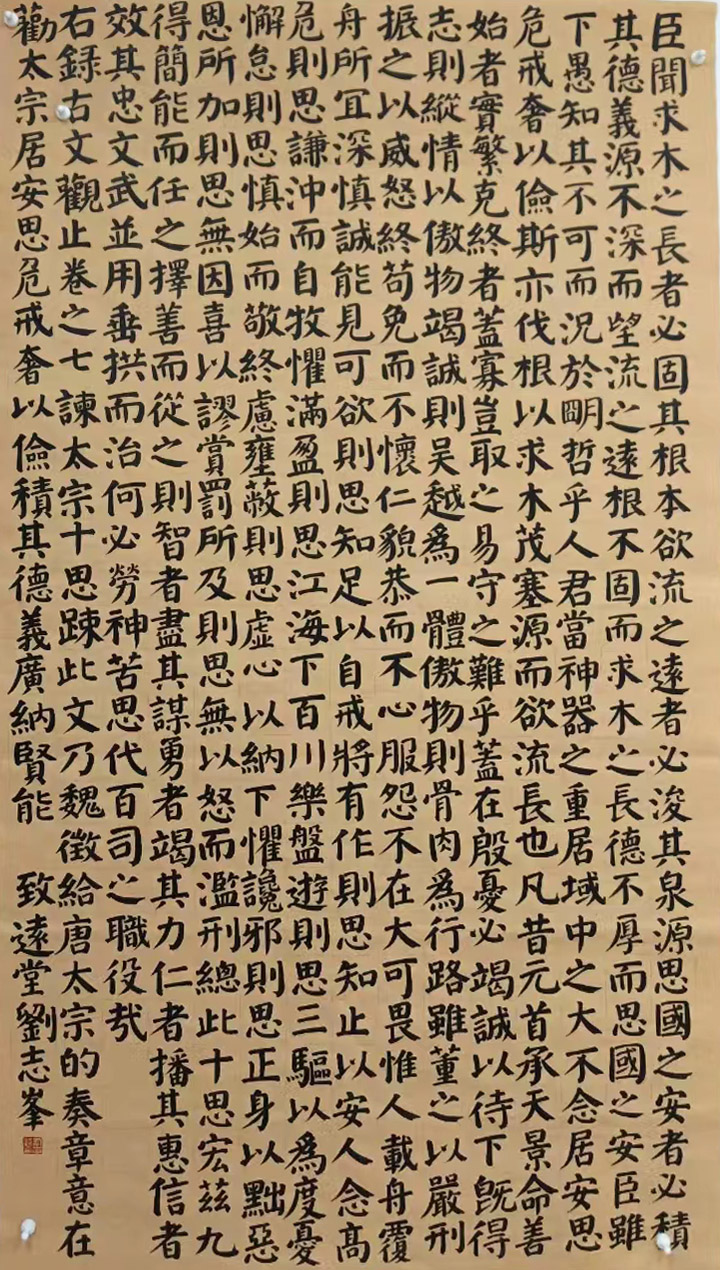 臣聞求木之長者必固其根本欲流之遠者必浚其泉源思國之安者必積
其德義源不深而望流之遠根不固而求木之長德不厚而思國之安臣雖
下愚知其不可而況於明哲乎人君當神器之重居域中之大不念居安思
危戒奢以儉斯亦伐根以求木茂塞源而欲流長也凡昔元首承天景命善
始者實繁克終者蓋寡豈取之易守之難乎蓋在殷憂必竭誠以待下既得
志則縱情以傲物竭誠則吴越為一體傲物則骨肉為行路雖董之以嚴刑
振之以威怒終苟免而不懷仁貌恭而不心服怨不在大可畏惟人載舟覆
舟所宜深慎誠能見可欲則思知足以自戒將有作則思知止以安人念高
危則思謙沖而自牧懼滿盈則思江海下百川樂盤遊則思三驅以為度憂
懈怠則思慎始而敬終慮壅蔽則思虛心以納下懼讒邪則思正身以黜惡
恩所加則思無因喜以謬賞罰所及則思無以怒而濫刑總此十思宏茲九
得簡能而任之擇善而從之則智者盡其謀勇者竭其力仁者播其惠信者
效其忠文武並用垂拱而治何必勞神苦思代百司之職役哉
右録古文觀止卷之七諫太宗十思踈此文乃魏徵給唐太宗的奏章意在
勸太宗居安思危戒奢以儉積其德義廣納賢能 致遠堂劉志峯